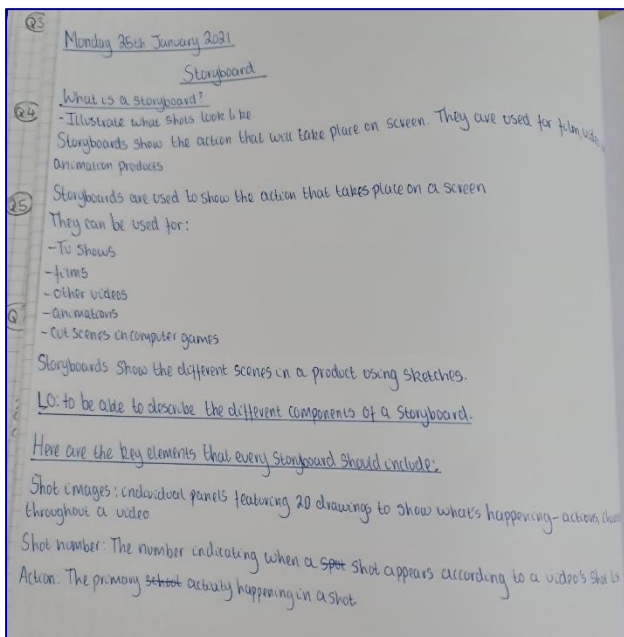 Q3
Monday 25th January 2021
Storyboard
What is a storyboard?
-Illustrate what shots look like
Q4
Storyboards show the action that will take place on screen. They are used for film, video
animation products
Storyboards are used to show the action that takes place on a screen
Q5
They can be used for:
-Tv shows
-films
-other videos
-animations
Q
-cut scenes in computer games
Storyboards show the different scenes in a product using sketches.
LO: to be able to describe the different components of a storyboard.
Here are the key elements that every storyboard should include:
Shot images: individual panels featuring 2D drawings to show what's happening-actions,
throughout a video
Shot number: The number indicating when a spot shot appears according to a video's shot
Action: The primary school activity happening in a shot